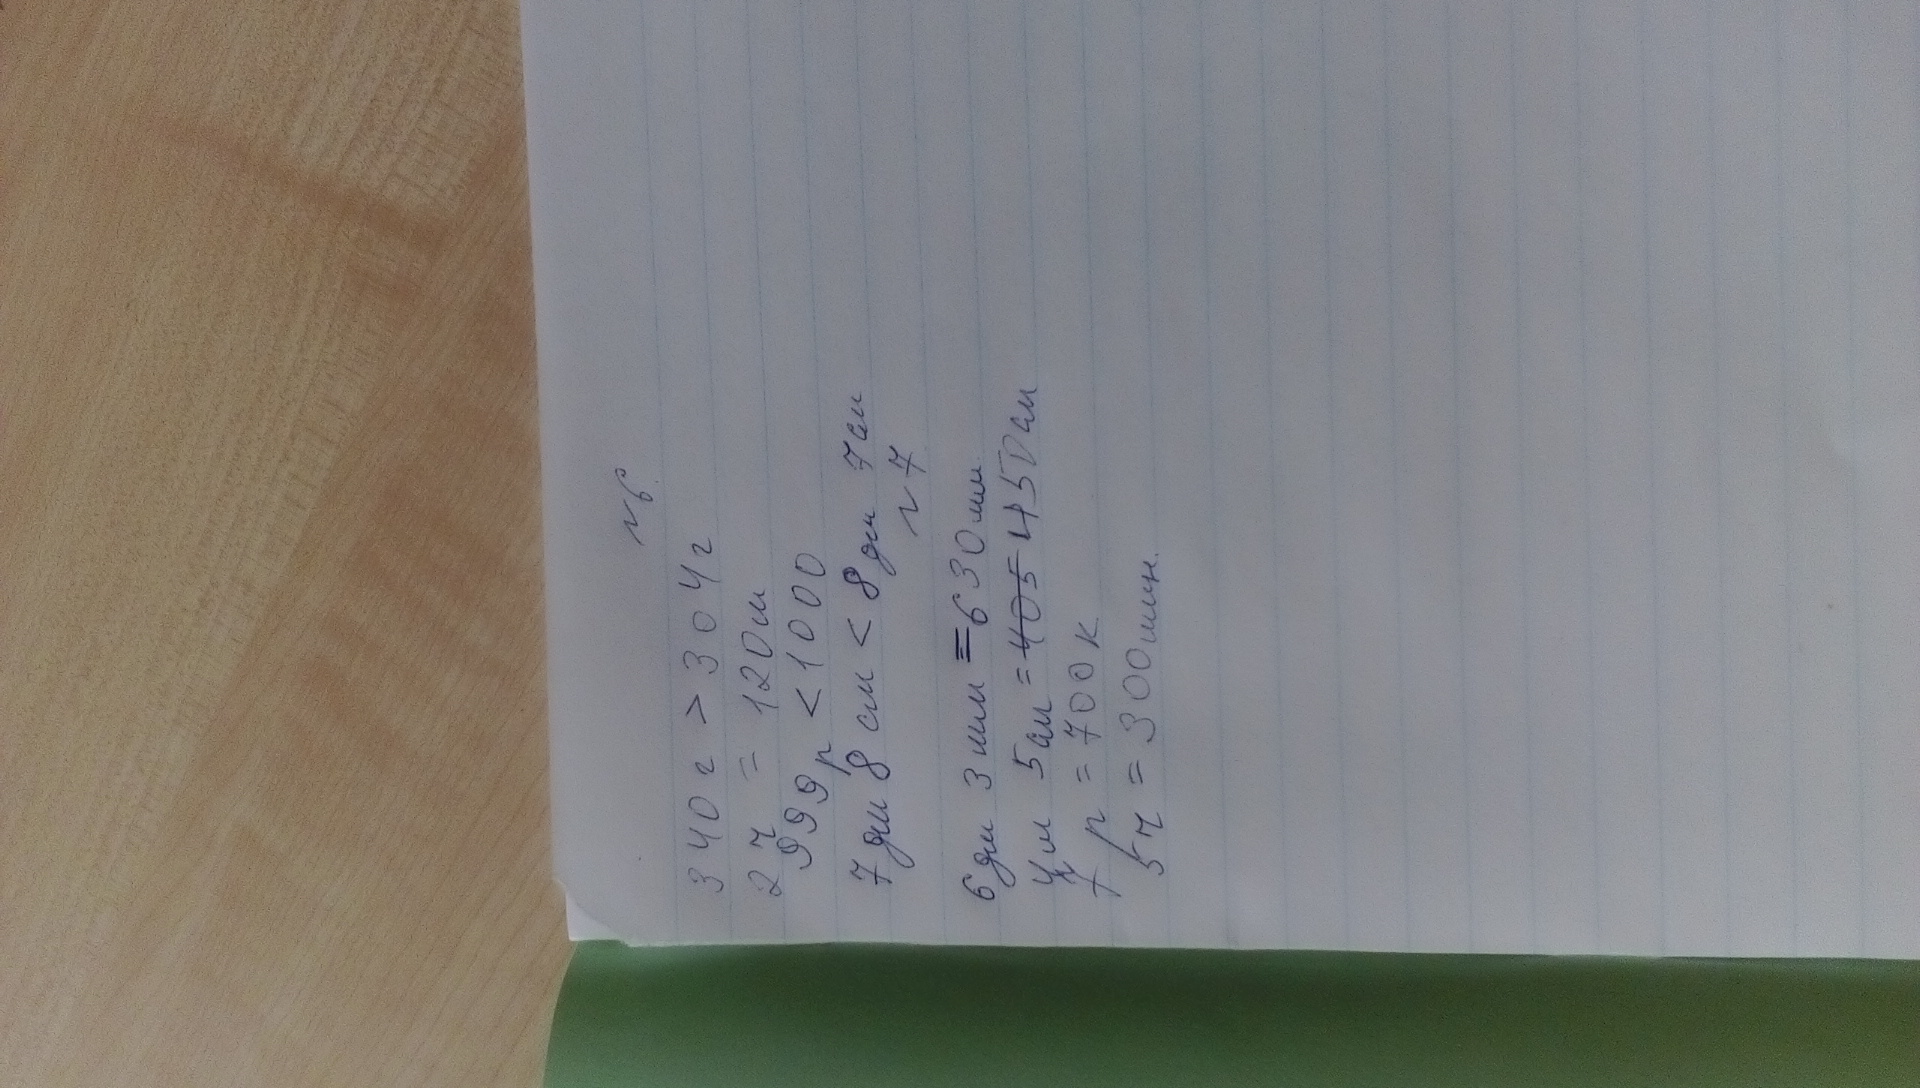 №6.
340 г > 304 г
2 ч = 120 м
999 р < 1000
7 дм 8 см < 8 дм 7 см
№7
6 дм 3 мм = 630 мм.
4 м 5 см = 405 450 см
7 р = 700 к.
5 ч = 300 мин.